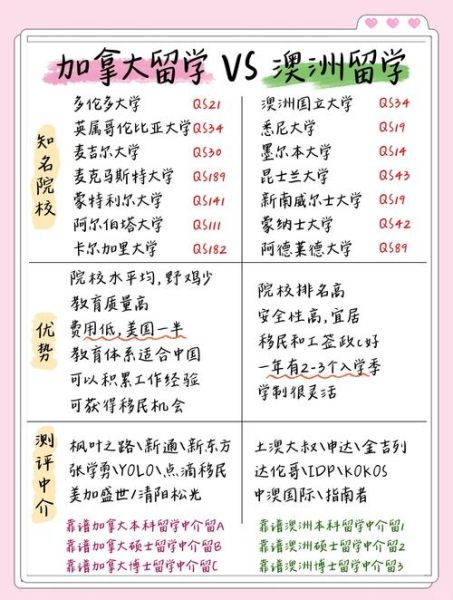 加拿大留学 VS 澳洲留学
知名院校
多伦多大学 QS21
英属哥伦比亚大学 QS34
麦吉尔大学 QS30
麦克马斯特大学 QS189
蒙特利尔大学 QS141
阿尔伯塔大学 QS111
卡尔加里大学 QS182
澳洲国立大学 QS34
悉尼大学 QS19
墨尔本大学 QS14
昆士兰大学 QS43
新南威尔士大学 QS19
蒙纳士大学 QS42
阿德莱德大学 QS89
优势
院校水平均,野鸡少
教育质量高
费用低,美国一半
教育体系适合中国
可以积累工作经验
可获得移民机会
院校排名高
安全性高,宜居
移民和工签政c好
一年有2-3个入学季
学制很灵活
测评中介
枫叶之路\新通\新东方
张学勇\YOLO\点滴移民
美加盛世/清阳松光
土澳大叔/申达/金吉列
达伦哥\IDP\KOKOS
中澳国际\指南者
靠谱加拿大本科留学中介留A
靠谱加拿大硕士留学中介留B
靠谱加拿大博士留学中介留C
靠谱澳洲本科留学中介留1
靠谱澳洲硕士留学中介留2
靠谱澳洲博士留学中介留3